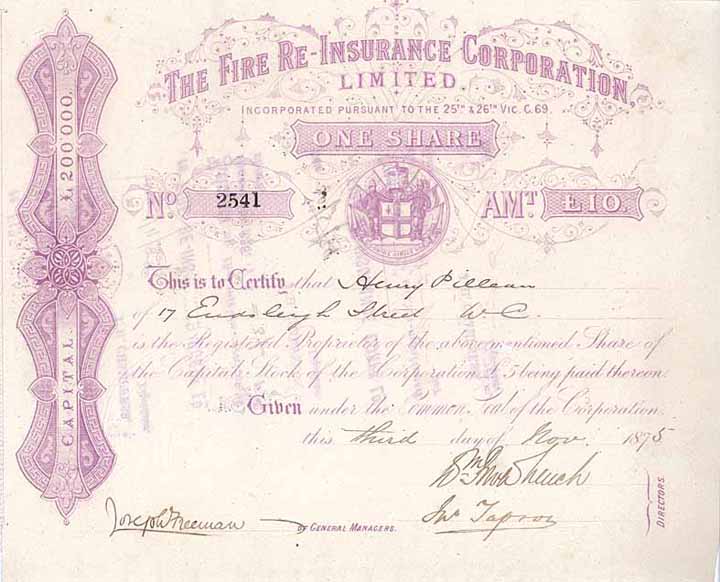 THE FIRE RE-INSURANCE CORPORATION,
LIMITED
INCORPORATED PURSUANT TO THE 25TH & 26TH VIC. C. 69.
ONE SHARE
No 2541 AMT £10.
This is to Certify that Henry Pilleau
of 17 Endsleigh Street W C
is the Registered Proprietor of the abovementioned Share of
the Capital Stock of the Corporation £5 being paid thereon.
Given under the Common Seal of the Corporation
this third day of Nov. 1875
Joseph Freeman
GENERAL MANAGERS.
DIRECTORS.
CAPITAL £200000.